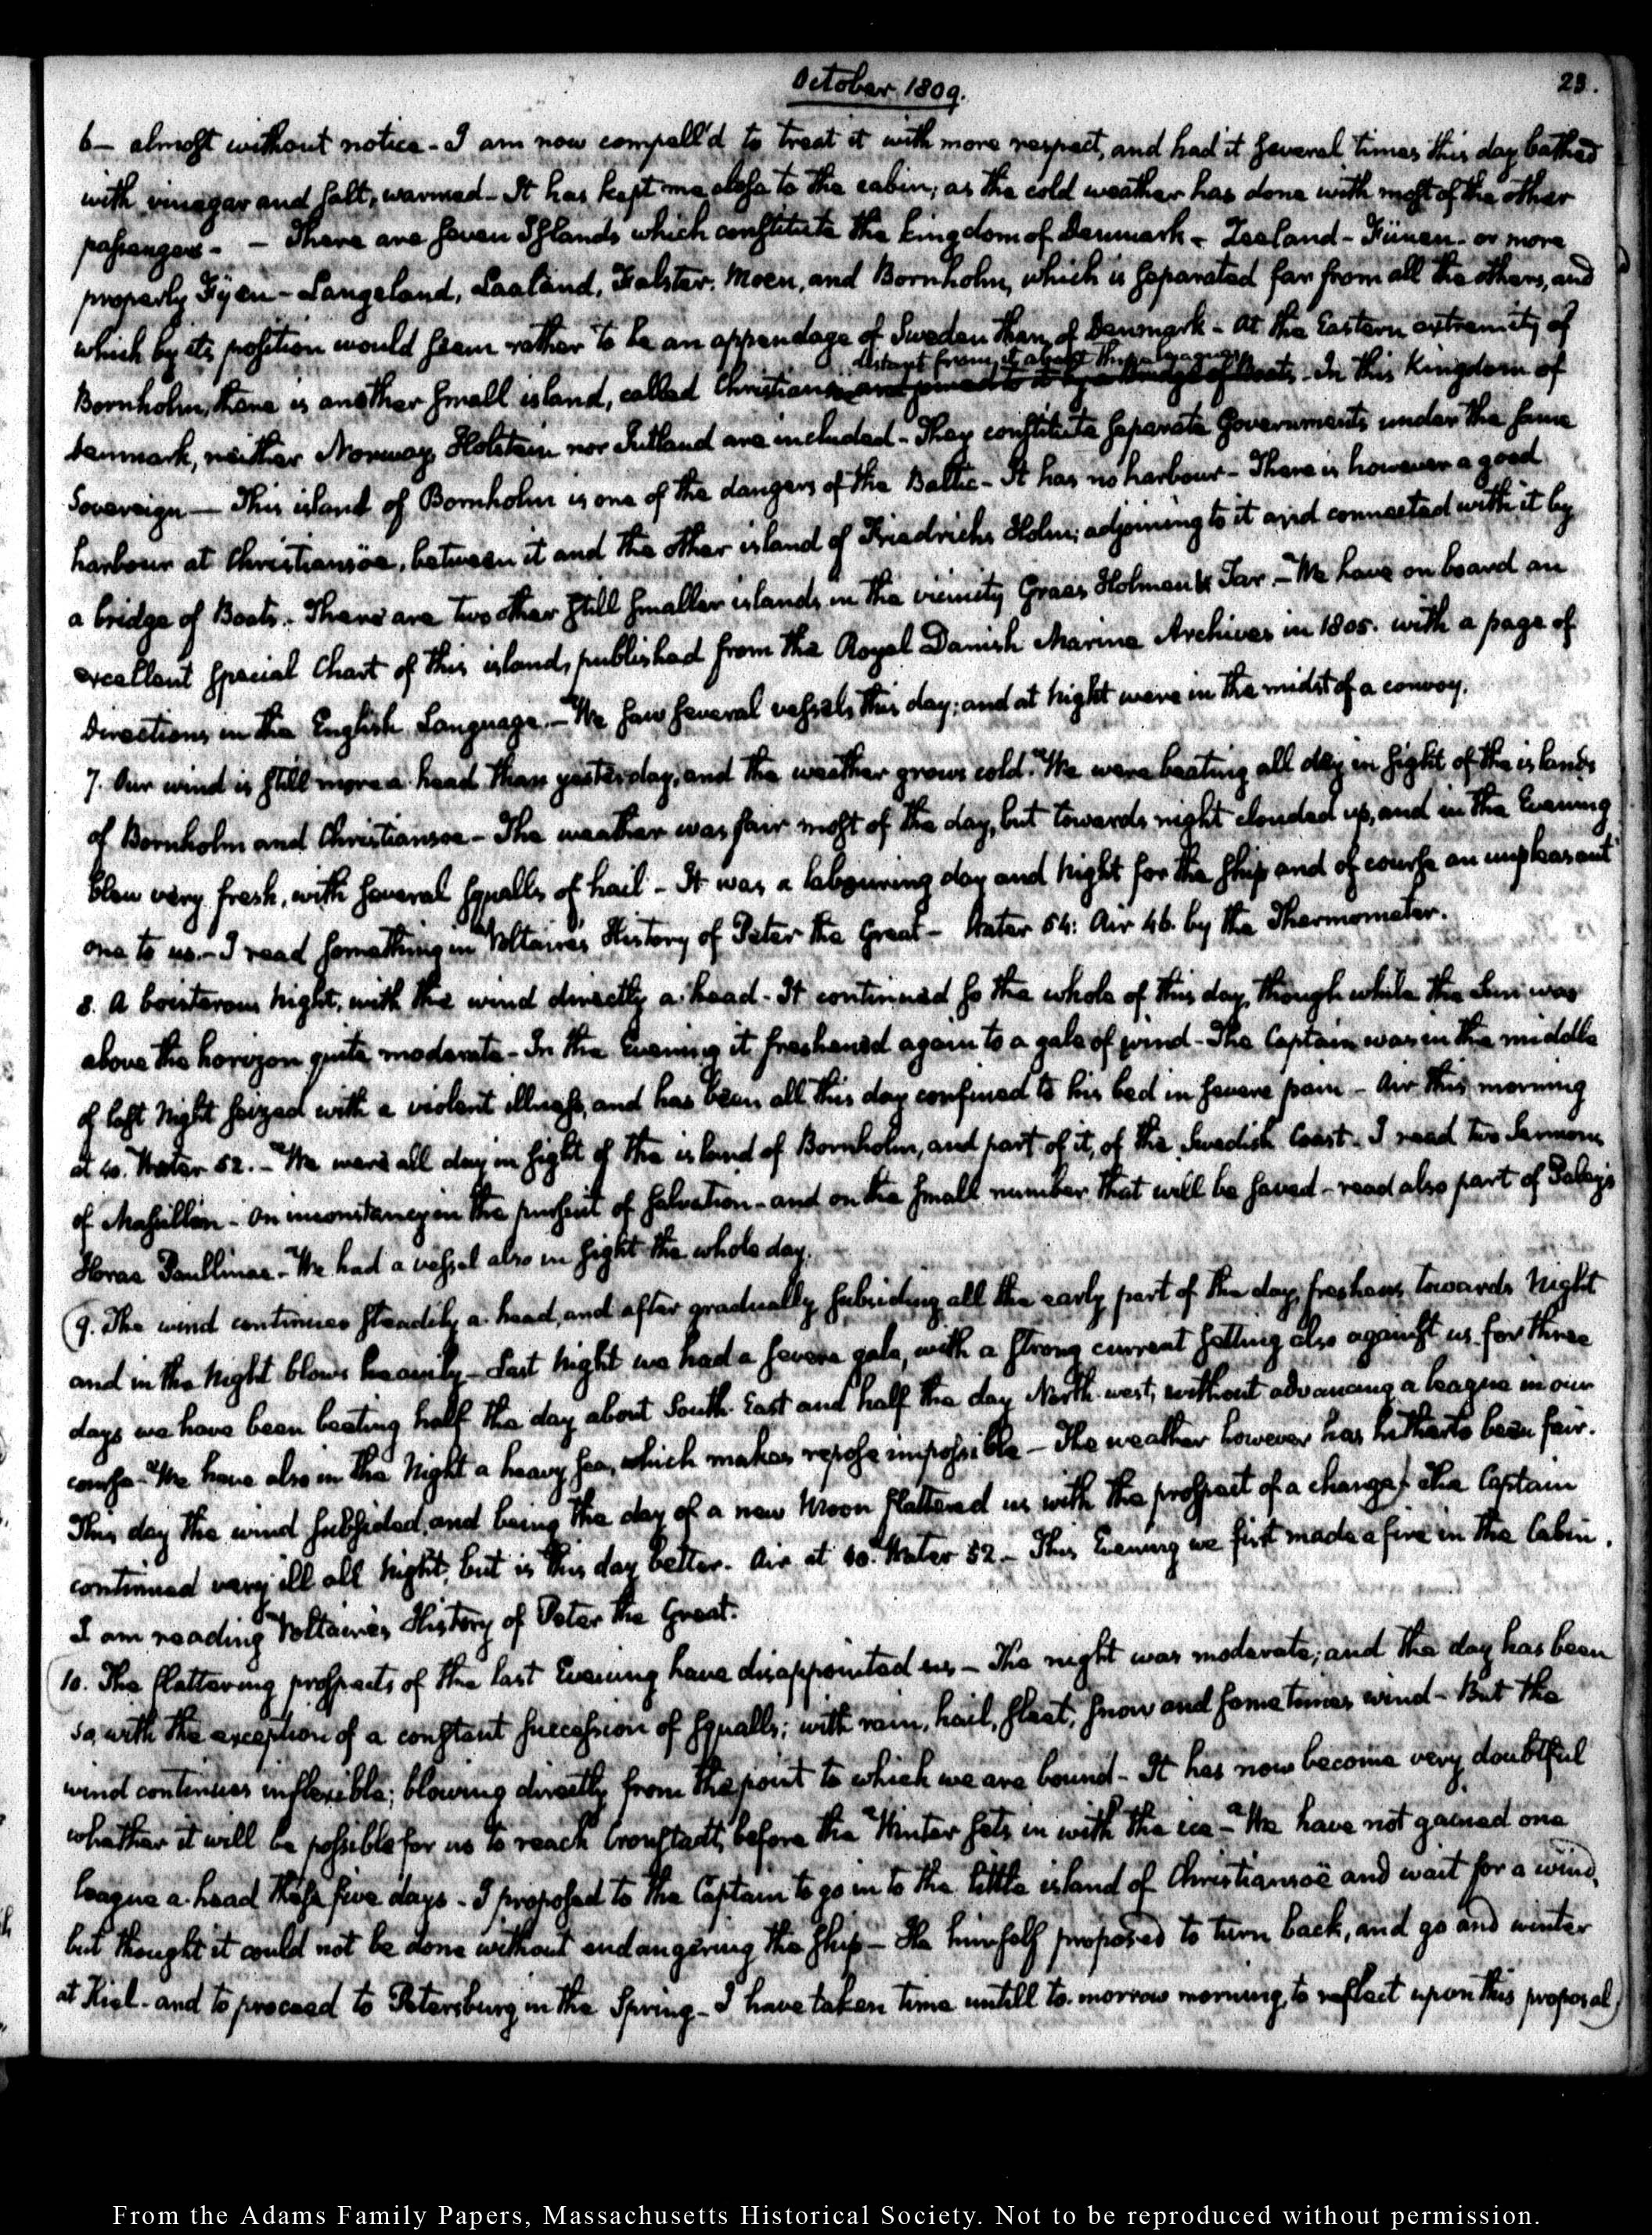 October 1809.
23.
6— almost without notice - I am now compell'd to treat it with more respect, and had it several times this day bathed
with vinegar and salt, warmed - It has kept me close to the cabin; as the cold weather has done with most of the other
passengers - — There are seven Islands which constitute the Kingdom of Denmark - Zeeland - Fünen - or more
properly Fÿen - Langeland, Laaland, Falster, Moen, and Bornholm, which is separated far from all the others, and
which by its position would seem rather to be an appendage of Sweden than of Denmark - At the Eastern extremity of
distant from it about three leagues
Bornholm, there is another small island, called Christiansoe and joined to it by a bridge of Boats - In this Kingdom of
Denmark, neither Norway, Holstein nor Jutland are included - They constitute separate Governments under the same
Sovereign — This island of Bornholm is one of the dangers of the Baltic - It has no harbour - There is however a good
harbour at Christiansöe, between it and the other island of Friedrichs Holm; adjoining to it and connected with it by
a bridge of Boats. - There are two other still smaller islands in the vicinity Graas Holmen & Tar. - We have on board an
excellent special Chart of this island, published from the Royal Danish Marine Archives in 1805. with a page of
Directions in the English Language. - We saw several vessels this day; and at Night were in the midst of a convoy.
7. Our wind is still more a-head than yesterday, and the weather grows cold. We were beating all day in sight of the islands
of Bornholm and Christiansoe - The weather was fair most of the day, but towards night clouded up, and in the Evening
blew very fresh, with several squalls of hail - It was a labouring day and Night for the ship and of course an unpleasant
one to us. - I read something in Voltaire's History of Peter the Great - Water 54: Air 46. by the Thermometer.
8. A boisterous Night, with the wind directly a-head - It continued so the whole of this day, though while the Sun was
above the horizon quite moderate - In the Evening it freshened again to a gale of wind - The Captain was in the middle
of last Night seized with a violent illness, and has been all this day confined to his bed in severe pain - Air this morning
at 40. Water 52. - We were all day in sight of the island of Bornholm, and part of it, of the Swedish Coast - I read two Sermons
of Massillon - On inconstancy in the pursuit of salvation - and on the small number that will be saved - read also part of Paley's
Horae Paullinae - We had a vessel also in sight the whole day.
9. The wind continues steadily a-head, and after gradually subsiding all the early part of the day, freshens towards Night
and in the Night blows heavily - Last Night we had a severe gale, with a strong current setting also against us - for three
days we have been beating half the day about South East and half the day North-west, without advancing a league in our
course - We have also in the Night a heavy sea, which makes repose impossible - The weather however has hitherto been fair.
This day the wind subsided, and being the day of a new Moon flattered us with the prospect of a change. The Captain
continued very ill all Night, but is this day better. Air at 40. Water 52 - This Evening we first made a fire in the Cabin.
I am reading Voltaire's History of Peter the Great.
10. The flattering prospects of the last Evening have disappointed us - The night was moderate; and the day has been
so, with the exception of a constant succession of squalls; with rain, hail, sleet, snow and sometimes wind - But the
wind continues inflexible; blowing directly from the point to which we are bound - It has now become very doubtful
whether it will be possible for us to reach Cronstadt, before the Winter sets in with the ice - We have not gained one
league a-head these five days - I proposed to the Captain to go in to the little island of Christiansöe and wait for a wind,
but thought it could not be done without endangering the ship - He himself proposed to turn back, and go and winter
at Kiel - and to proceed to Petersburg in the Spring - I have taken time untill to-morrow morning, to reflect upon this proposal
From the Adams Family Papers, Massachusetts Historical Society. Not to be reproduced without permission.